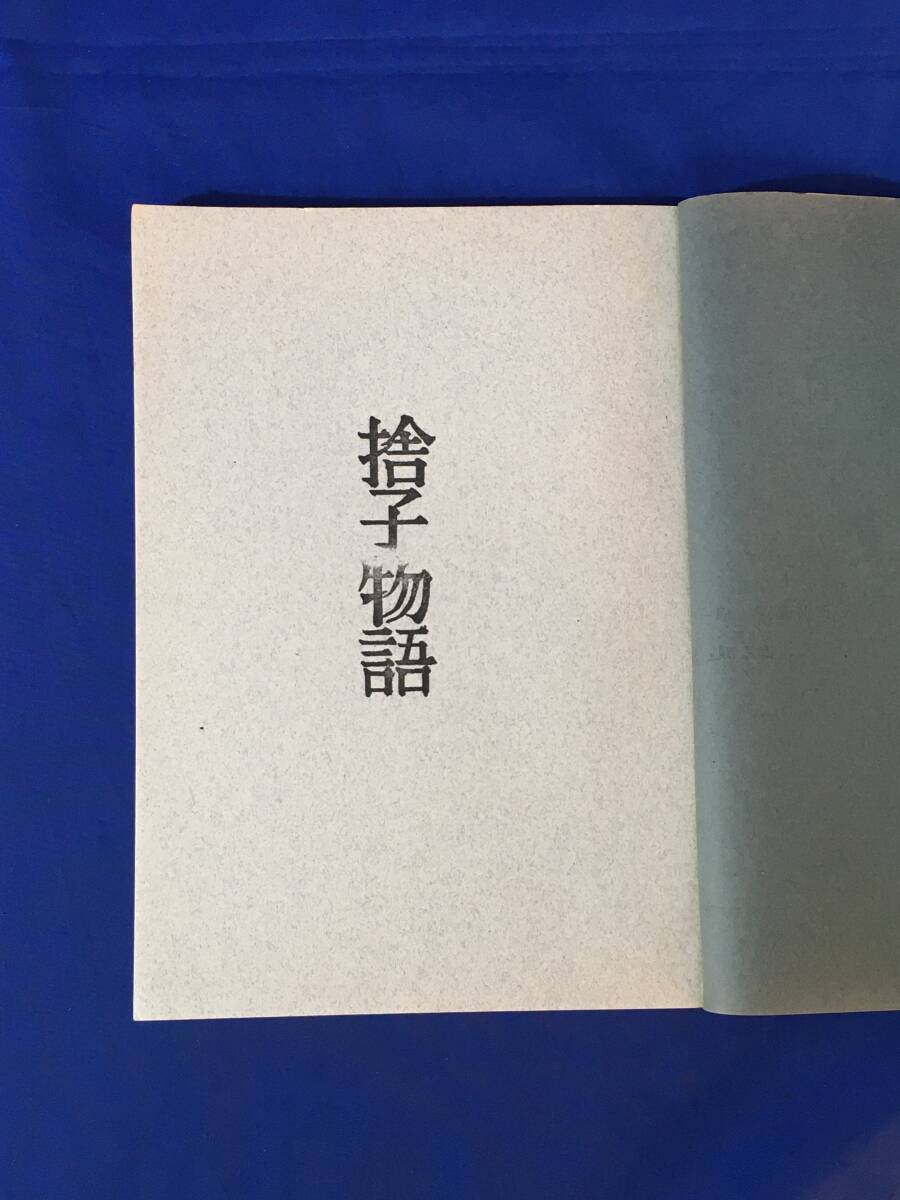 捨子物語